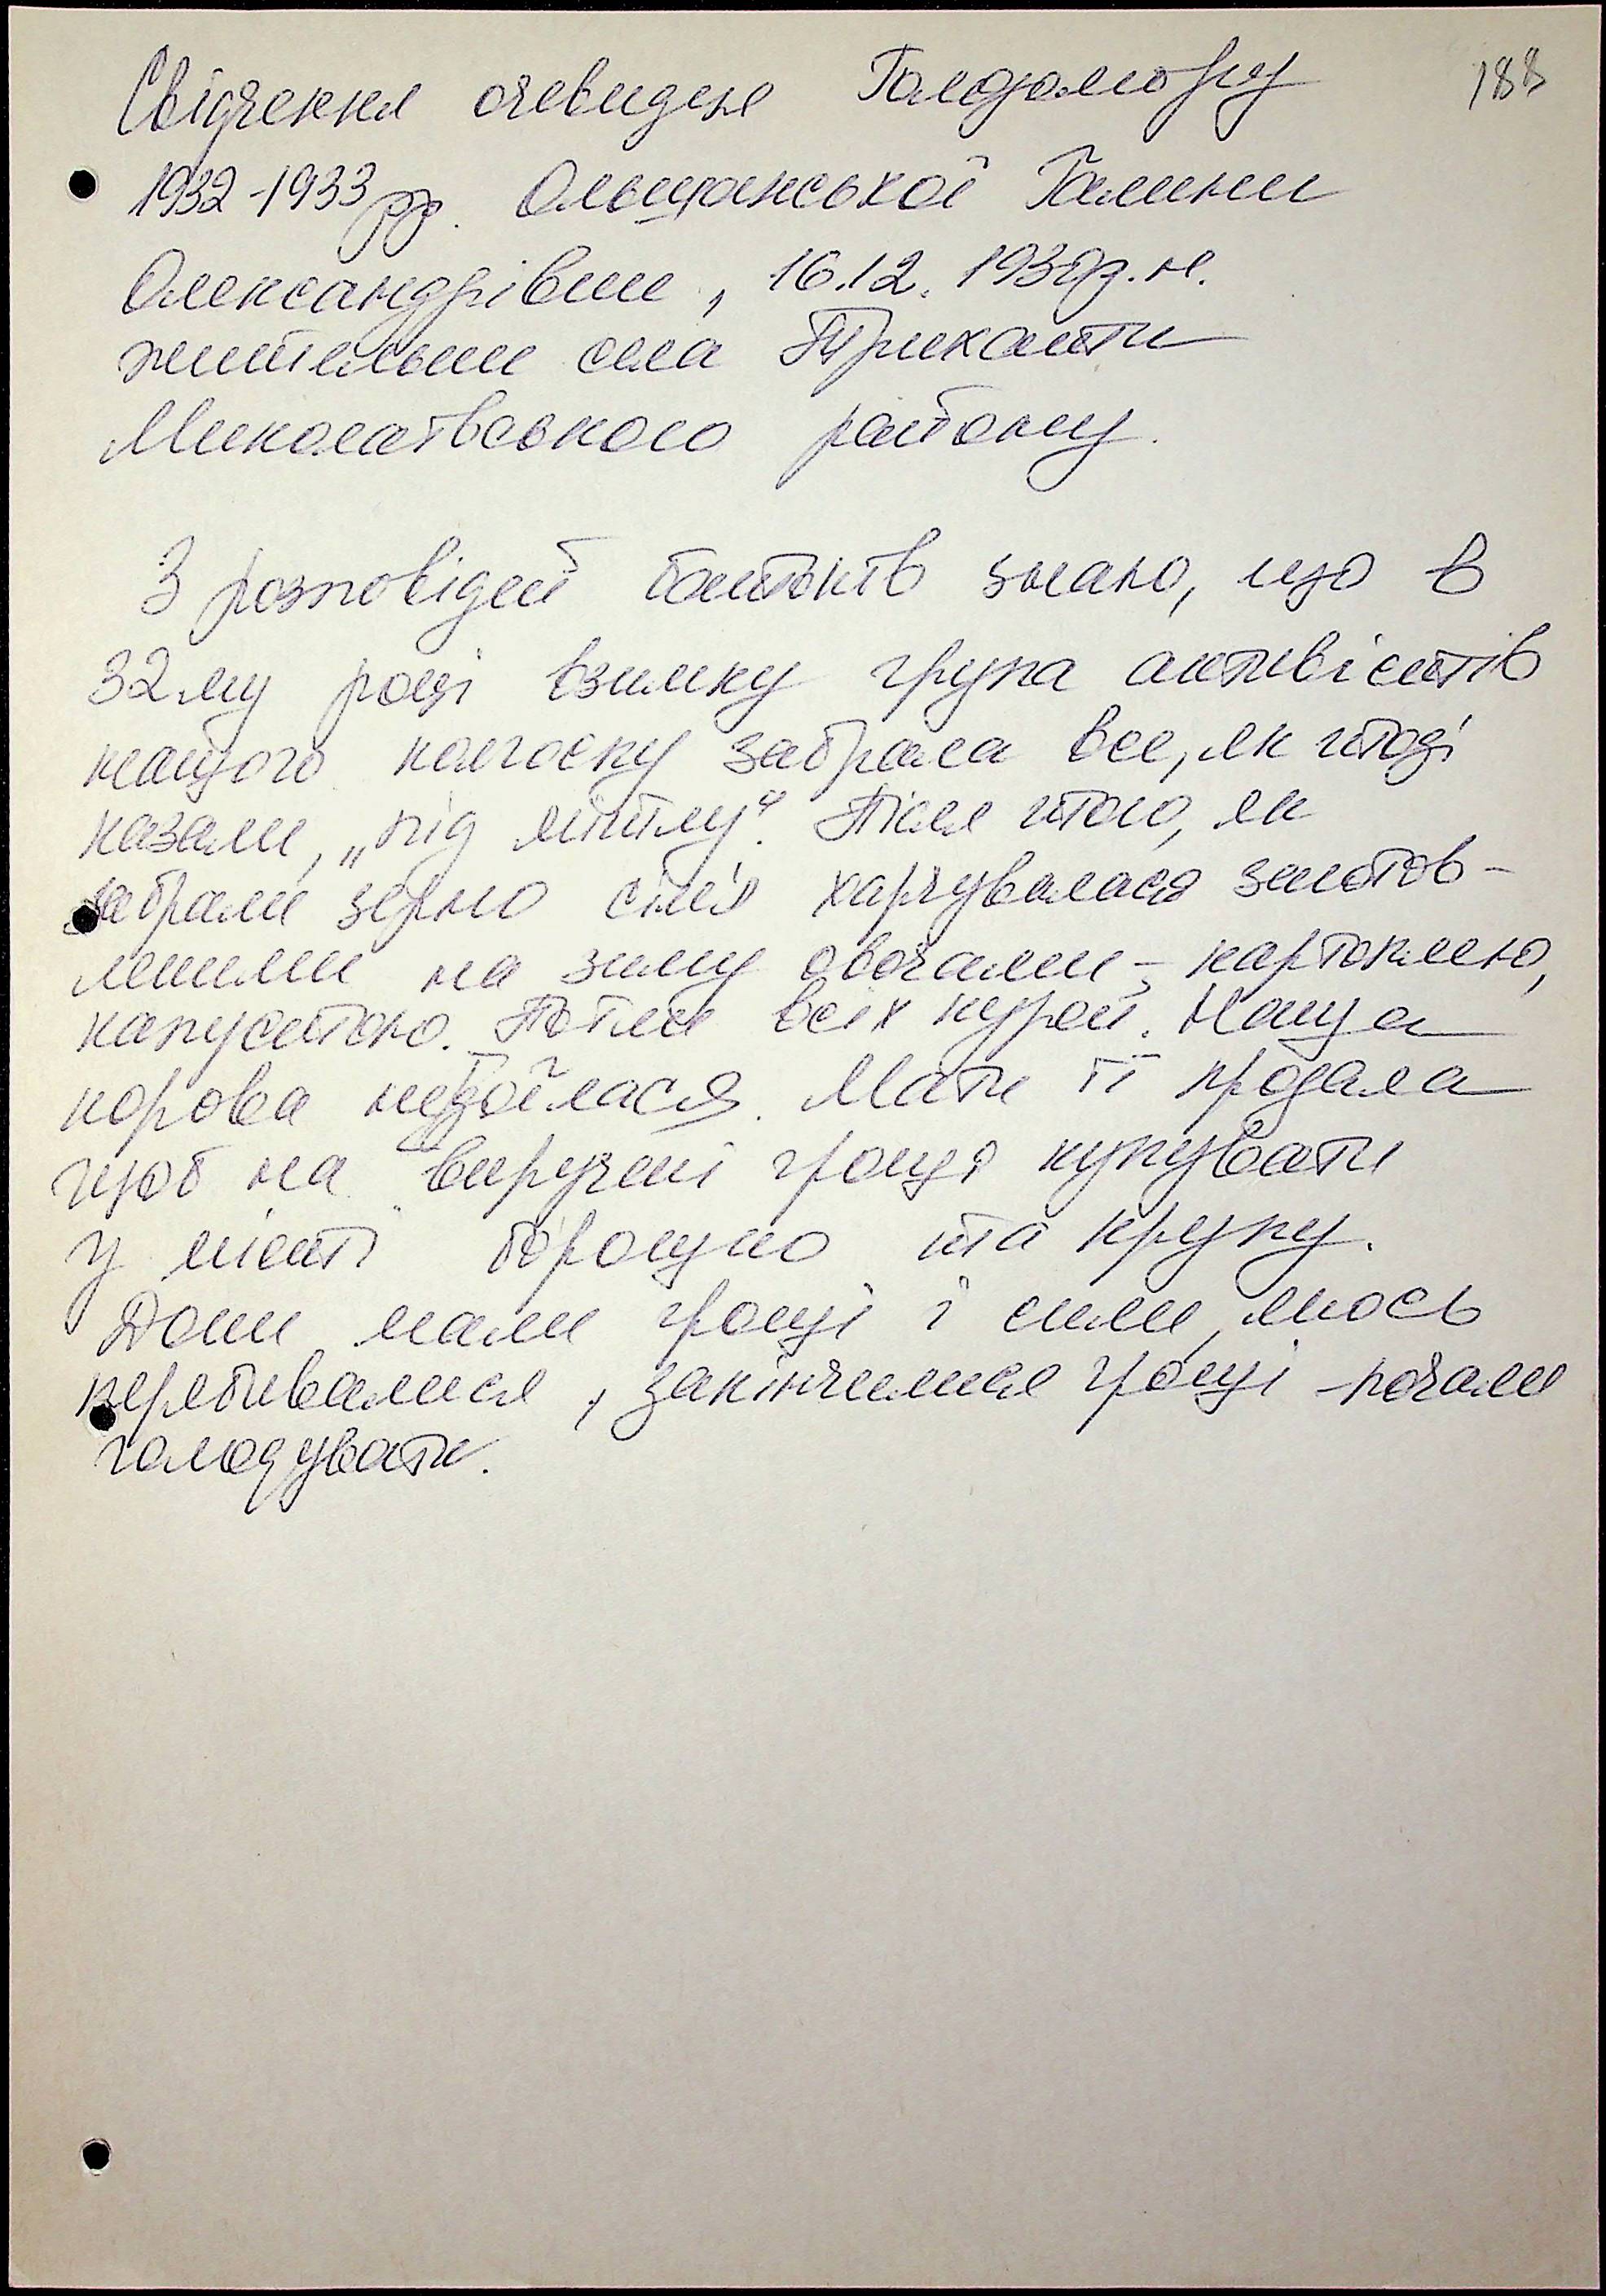 188
Свідчення очевидця Голодомору
1932-1933 рр. Ольшанської Галини
Олександрівни, 16.12.1930 р.н.
жительки села Трихати
Миколаївського району.
З розповідей батьків знаю, що в
32му році взимку група активістів
нашого колгоспу забрала все, як тоді
казали, „під мітлу“. Після того, як
забрали зерно сім'я харчувалася заготов-
леними на зиму овочами - картоплею,
капустою. Поїли всіх курей. Наша
корова не доїлася. Мати її продала
щоб на виручені гроші купувати
у місті борошно та крупу.
Доки мали гроші і сили, якось
перебивалися, закінчилися гроші - почали
голодувати.